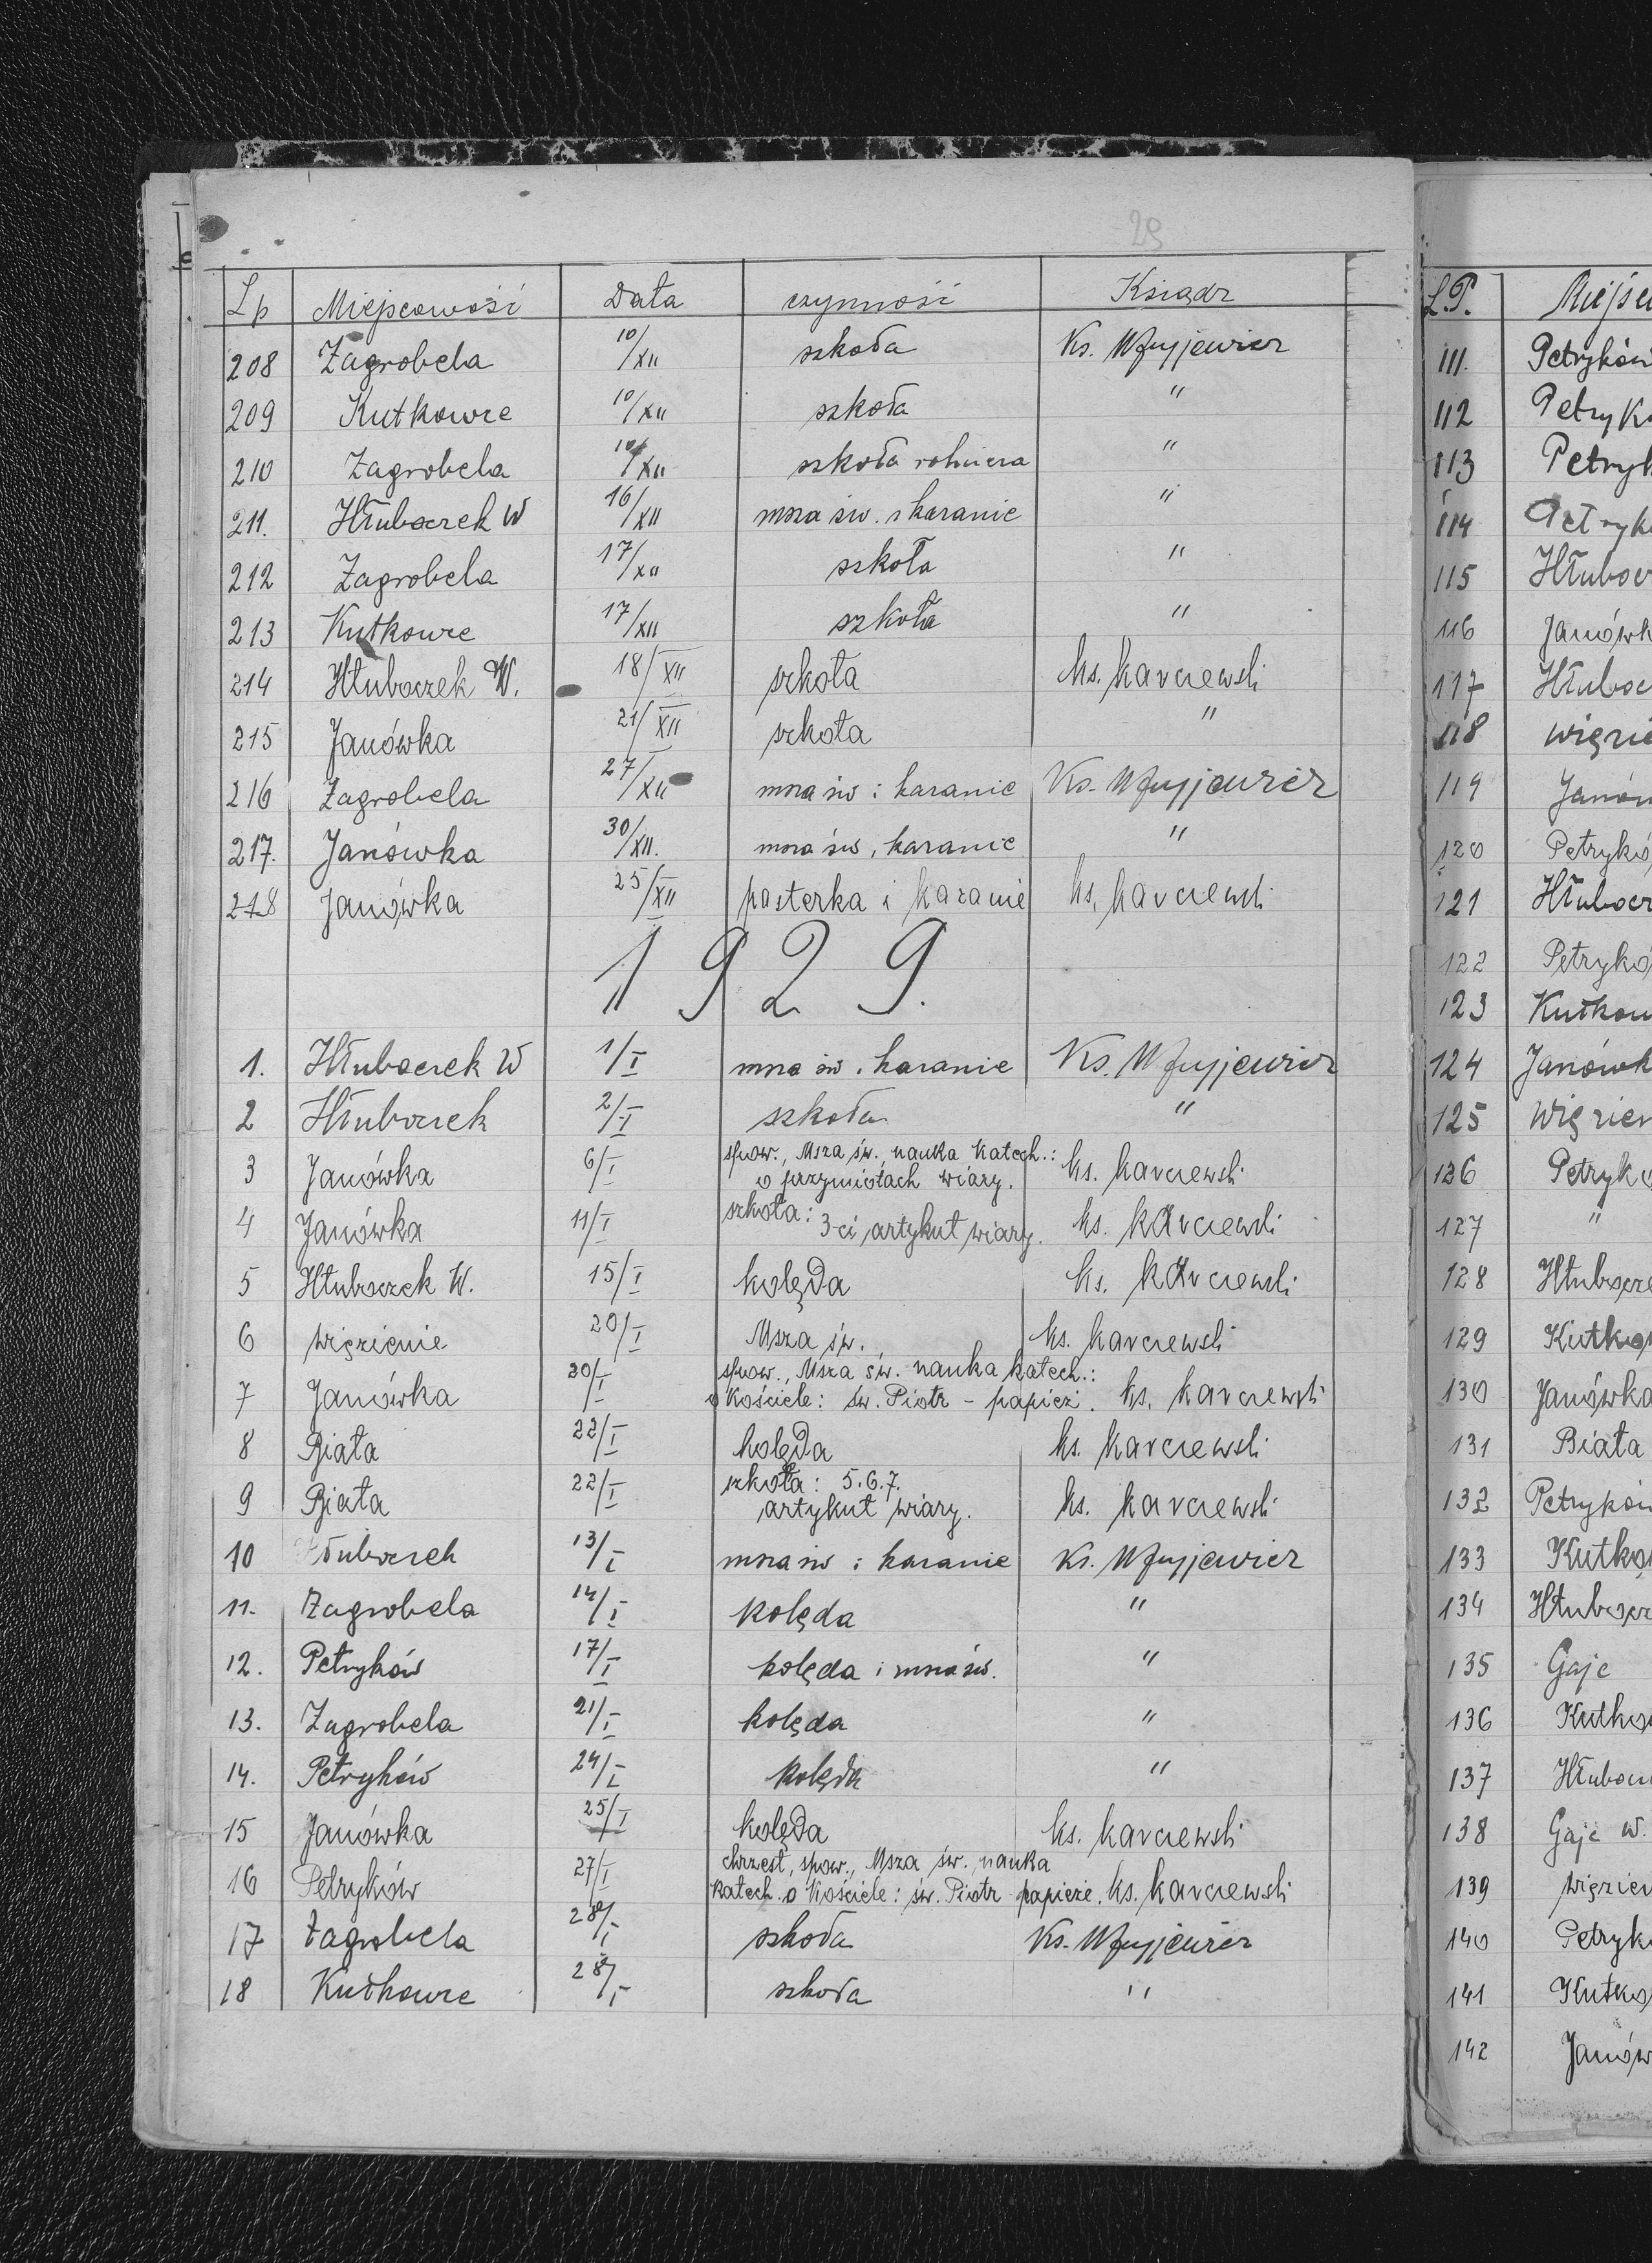 29
Lp Miejscowość Data czynność Ksiądz
208 Zagrobela 10/XII szkoła Ks.
209 Kutkowce 10/XII szkoła "
210 Zagrobela 10/XII szkoła rolnicza "
211. Hłuboczek W 16/XII msza św. i kazanie "
212 Zagrobela 17/XII szkoła "
213 Kutkowce 17/XII szkoła "
214 Hłuboczek W. 18/XII szkoła ks. Karczewski
215 Janówka 21/XII szkoła "
216 Zagrobela 27/XII msza św i kazanie Ks.
217. Janówka 30/XII. msza św, kazanie "
218 Janówka 25/XII pasterka i kazanie ks. Karczewski
1929.
1. Hłuboczek W 1/I msza św. kazanie Ks.
2 Hłuboczek 2/I szkoła "
3 Janówka 6/I spow., Msza św., nauka katech.: ks. Karczewski
o przymiotach wiary.
4 Janówka 11/I szkoła: 3-ci artykuł wiary. ks. Karczewski
5 Hłuboczek W. 15/I kolęda ks. Karczewski
6 więzienie 20/I Msza św. ks. Karczewski
7 Janówka 20/I spow., Msza św. nauka katech.:
o Kościele: św. Piotr - papież. ks. Karczewski
8 Biała 22/I kolęda ks. Karczewski
9 Biała 22/I szkoła: 5.6.7.
artykuł wiary. ks. Karczewski
10 Hłuboczek 13/I msza św i kazanie Ks.
11. Zagrobela 14/I kolęda "
12. Petryków 17/I kolęda i msza św. "
13. Zagrobela 21/I kolęda "
14. Petryków 24/I kolęda "
15 Janówka 25/I kolęda ks. Karczewski
16 Petryków 27/I chrzest, spow., Msza św. nauka
katech. o Kościele: św. Piotr papieże. ks. Karczewski
17 Zagrobela 28/I szkoła Ks.
18 Kutkowce 28/I szkoła "
L.P. Miejsc
111. Petryków
112 Petryk
113 Petryk
114 Petryk
115 Hłubocz
116 Janówk
117 Hłuboc
118 więzie
119 Janów
120 Petrykó
121 Hłubocz
122 Petrykó
123 Kutkow
124 Janówk
125 Więzien
126 Petryk
127 "
128 Hłubocze
129 Kutkow
130 Janówka
131 Biała
132 Petryków
133 Kutkow
134 Hłubocz
135 Gaje
136 Kutko
137 Hłubocz
138 Gaje W.
139 więzien
140 Petryk
141 Kutko
142 Janów